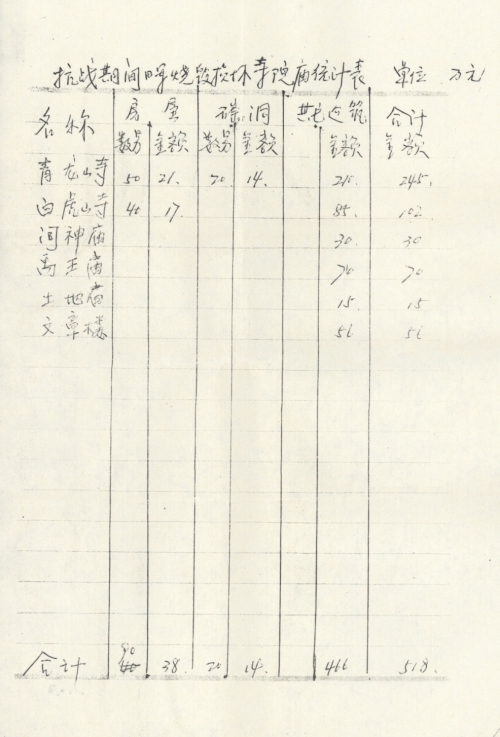 抗战期间日军烧毁损坏寺院庙统计表 单位 万元
名称 房屋 碹洞 其它建筑 合计
数量 金额 数量 金额 金额 金额
青龙山寺 50 21. 70 14. 210. 245.
白虎山寺 40 17. 85. 102
河神庙 30. 30
禹王庙 70 70
土地庙 15. 15
文章楼 56 56
合计 90 38. 70 14. 466 518.